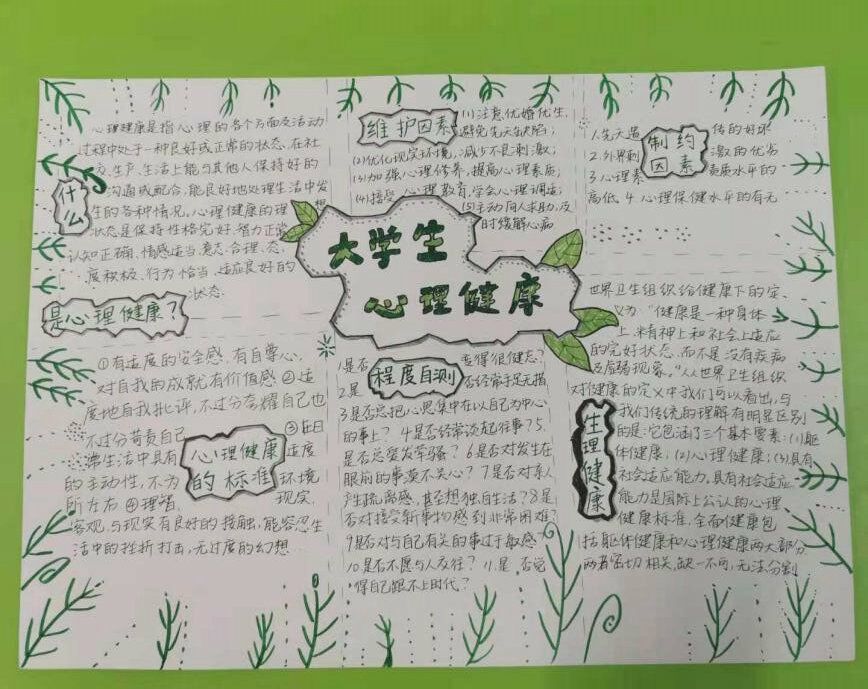 大学生
心理健康
什么
是心理健康?
心理健康是指心理的各个方面及活动
过程中处于一种良好或正常的状态,在社
交、生产、生活上能与其他人保持好的
沟通或配合,能良好地处理生活中发
生的各种情况,心理健康的理想
状态是保持性格完好、智力正常
认知正确、情感适当、意志合理、态
度积极、行为恰当、适应良好的
状态
维护因素
(1)注意优婚优生,
避免先天缺陷;
(2)优化现实环境,减少不良刺激;
(3)加强心理修养,提高心理素质;
(4)接受心理教育,学会心理调适;
(5)主动向人求助,及
时缓解心病
制约
因素
1.先天遗传的好坏
2.外界刺激的优劣
3.心理素质水平的
高低 4.心理保健水平的有无
心理健康
的标准
①有适度的安全感,有自尊心,
对自我的成就有价值感②适
度地自我批评,不过分夸耀自己也
不过分苛责自己 ③在日
常生活中具有适度
的主动性,不为环境
所左右④理智,现实,
客观,与现实有良好的接触,能容忍生
活中的挫折打击,无过度的幻想
程度自测
1是否变得很健忘?
2是否经常手足无措
3是否总把心思集中在以自己为中心
的事上?4是否经常谈起往事?5
是否总爱发牢骚?6是否对发生在
眼前的事漠不关心?7是否对亲人
产生疏离感,甚至想独自生活?8是
否对接受新事物感到非常困难?
9是否对与自己有关的事过于敏感
10是否不愿与人交往?11.是否觉
得自己跟不上时代?
生理健康
世界卫生组织给健康下的定
义为"健康是一种身体
上、精神上和社会上适应
的完好状态,而不是没有疾病
及虚弱现象。"从世界卫生组织
对健康的定义中我们可以看出,与
我们传统的理解有明显区别
的是:它包涵了三个基本要素:(1)躯
体健康;(2)心理健康;(3)具有
社会适应能力。具有社会适应
能力是国际上公认的心理
健康标准,全面健康包
括躯体健康和心理健康两大部分
两者密切相关,缺一不可,无法分割